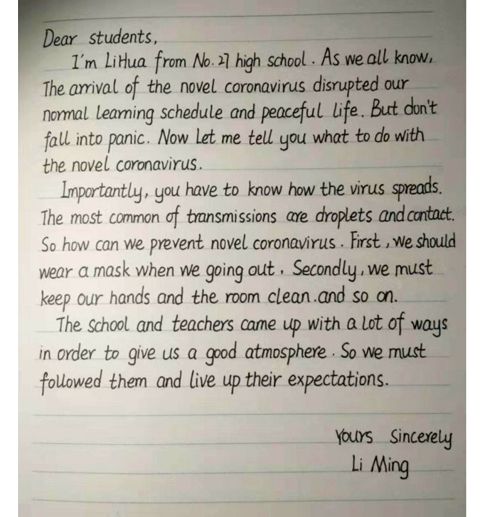 Dear students,
I'm LiHua from No.27 high school. As we all know,
The arrival of the novel coronavirus disrupted our
normal learning schedule and peaceful life. But don't
fall into panic. Now Let me tell you what to do with
the novel coronavirus.
Importantly, you have to know how the virus spreads.
The most common of transmissions are droplets and contact.
So how can we prevent novel coronavirus. First, we should
wear a mask when we going out. Secondly, we must
keep our hands and the room clean.and so on.
The school and teachers came up with a lot of ways
in order to give us a good atmosphere. So we must
followed them and live up their expectations.
Yours Sincerely
Li Ming